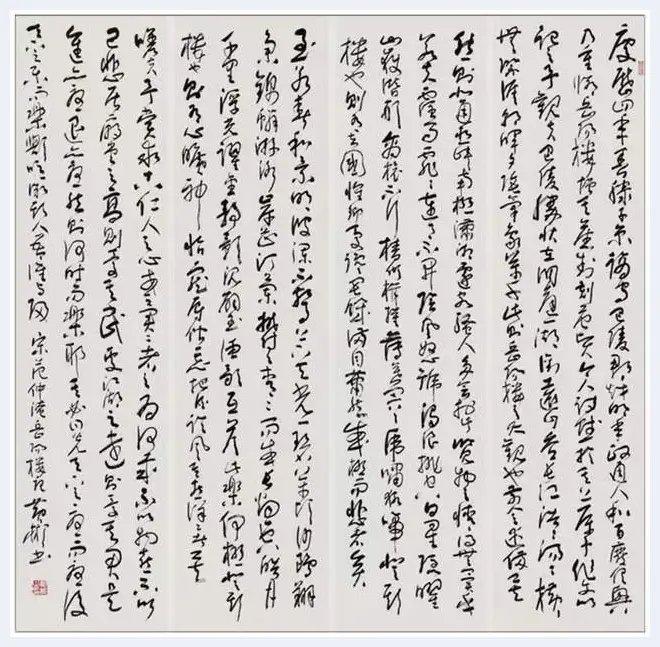 慶曆四年春滕子京謫守巴陵郡越明年政通人和百廢俱興
乃重修岳陽樓增其舊制刻唐賢今人詩賦於其上屬予作文以
記之予觀夫巴陵勝狀在洞庭一湖銜遠山吞長江浩浩湯湯橫
無際涯朝暉夕陰氣象萬千此則岳陽樓之大觀也前人之述備矣
然則北通巫峽南極瀟湘遷客騷人多會於此覽物之情得無異乎
若夫霪雨霏霏連月不開陰風怒號濁浪排空日星隱曜
山嶽潛形商旅不行檣傾楫摧薄暮冥冥虎嘯猿啼登斯
樓也則有去國懷鄉憂讒畏譏滿目蕭然感極而悲者矣
至若春和景明波瀾不驚上下天光一碧萬頃沙鷗翔
集錦鱗游泳岸芷汀蘭郁郁青青而或長煙一空皓月
千里浮光躍金靜影沉璧漁歌互答此樂何極登斯
樓也則有心曠神怡寵辱偕忘把酒臨風其喜洋洋者矣
嗟夫予嘗求古仁人之心或異二者之為何哉不以物喜不以
己悲居廟堂之高則憂其民處江湖之遠則憂其君是
進亦憂退亦憂然則何時而樂耶其必曰先天下之憂而憂後
天下之樂而樂歟噫微斯人吾誰與歸 宋范仲淹岳陽樓記 書